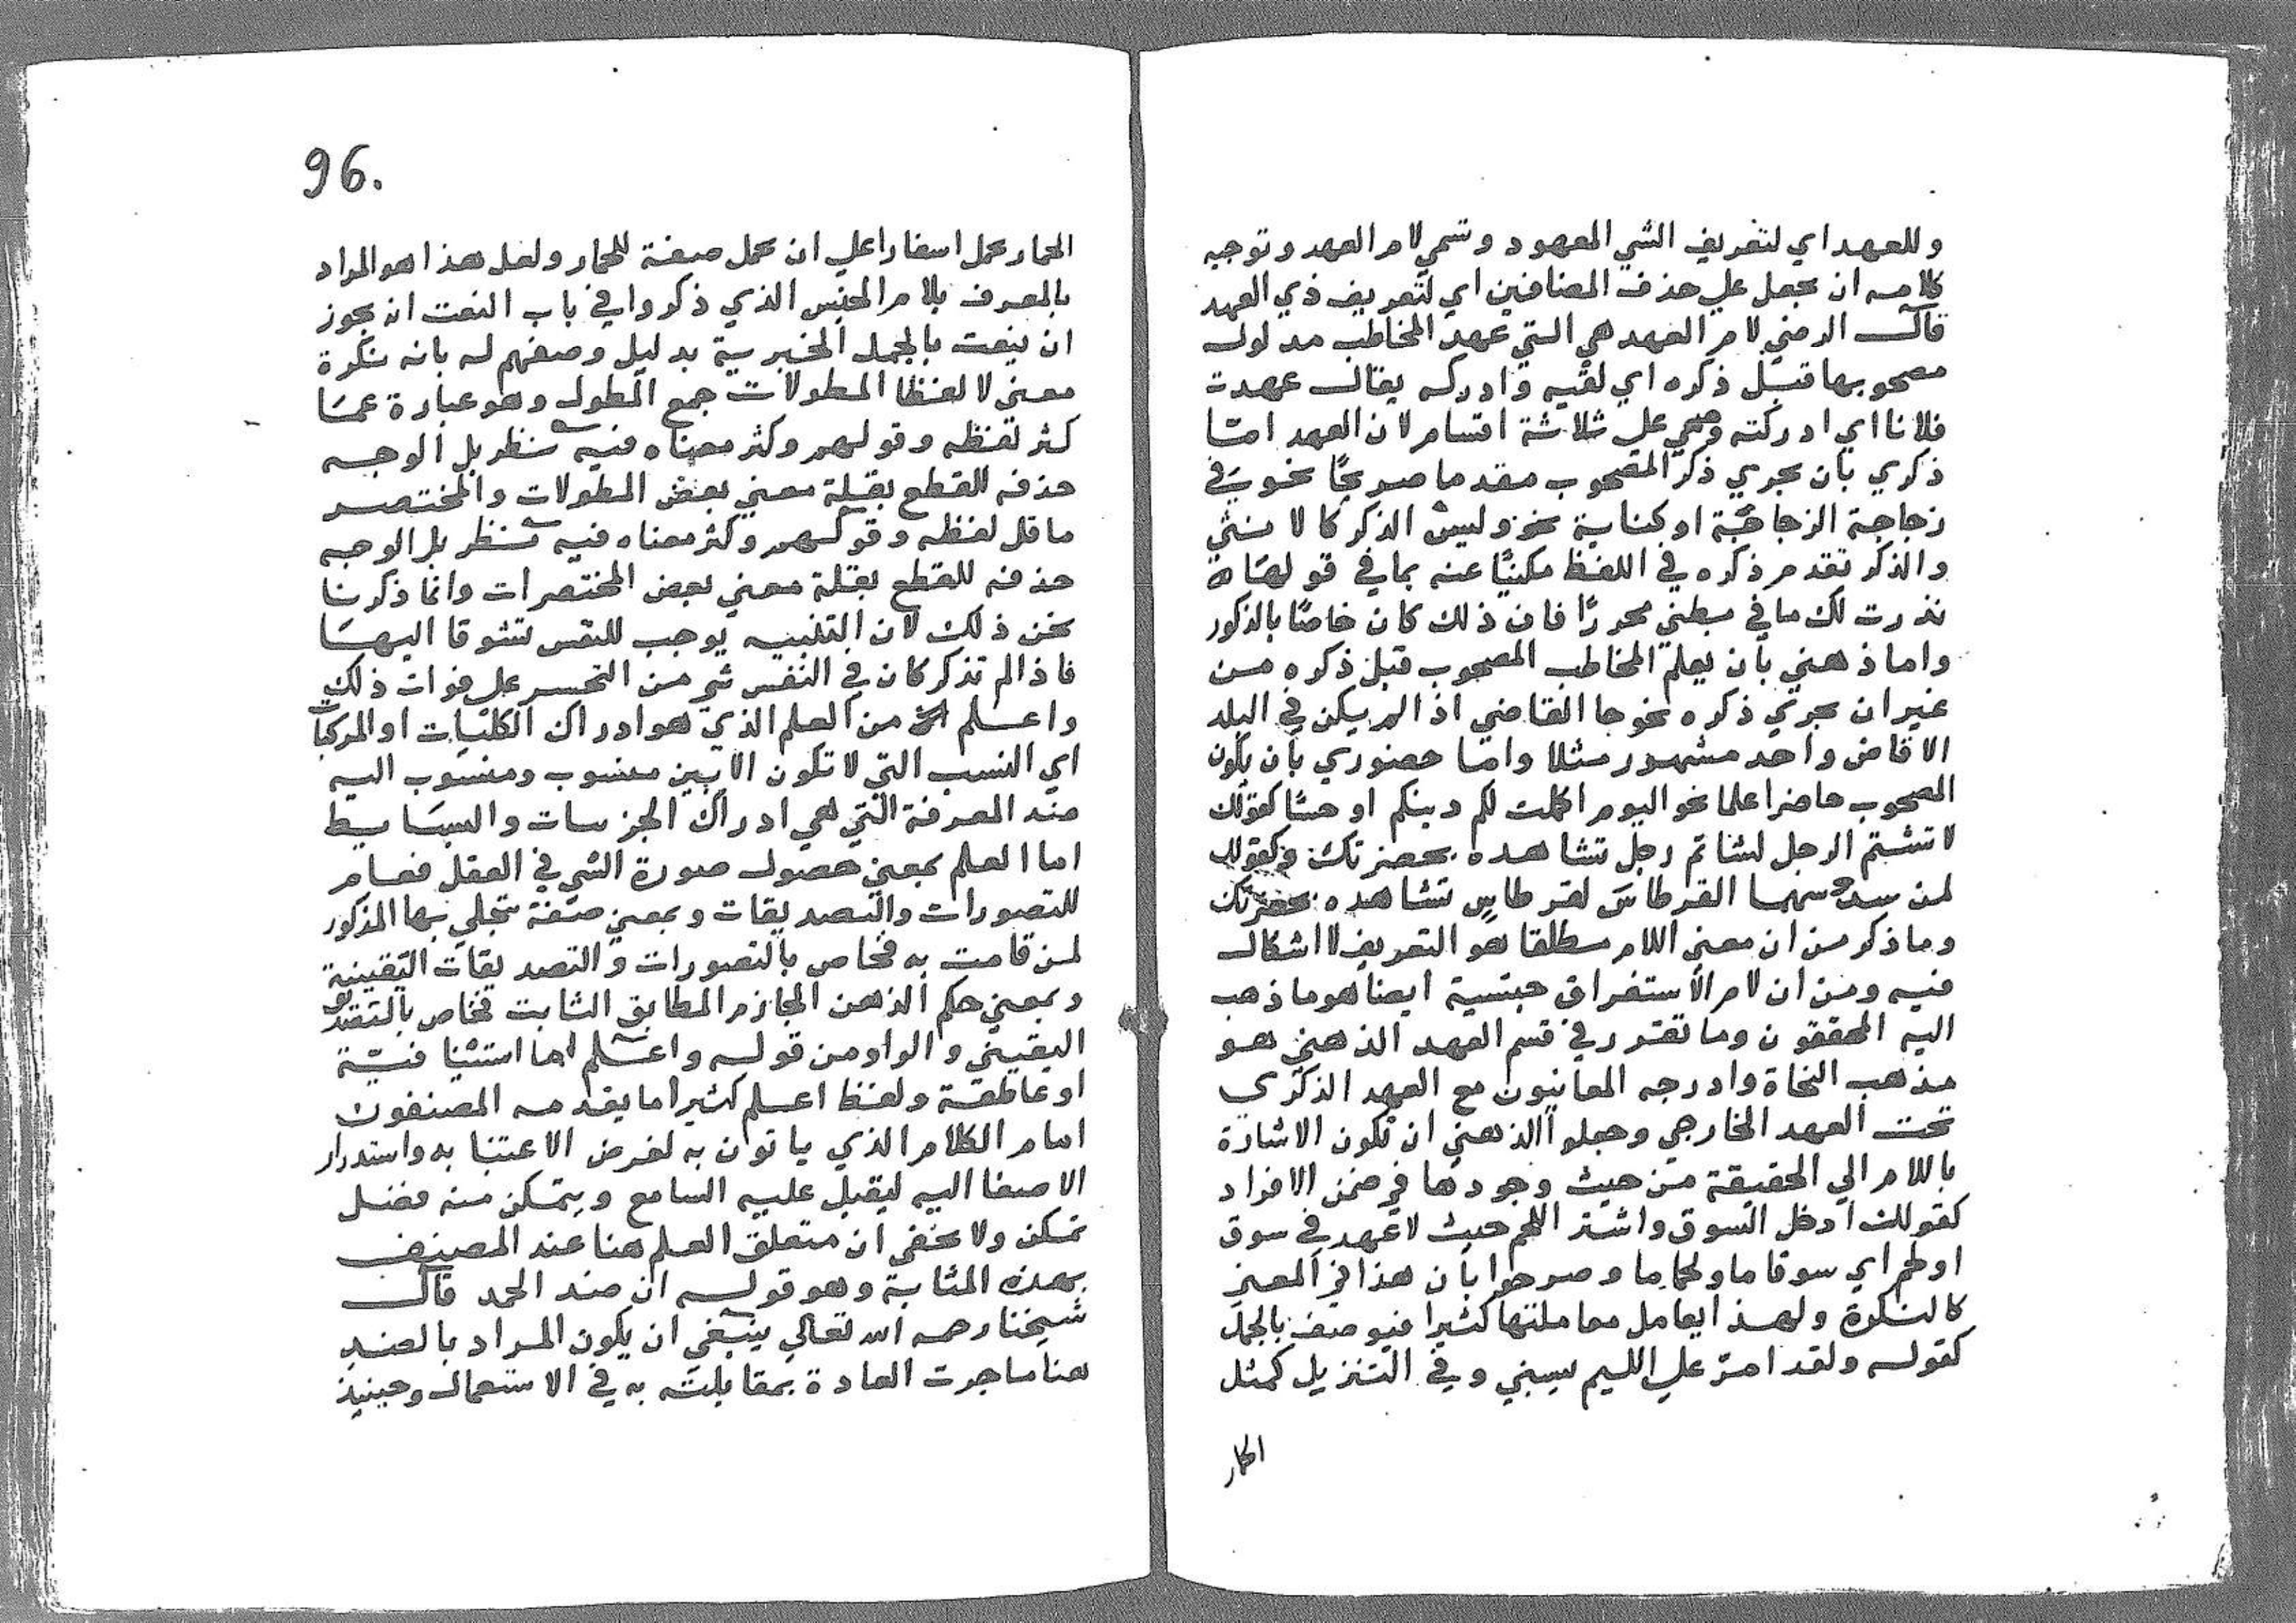 وللعهد اي لتعريف الشي المعهود وتسمي لام العهد وتوجيه
كلامه ان يحمل علي حذف المضافين اي لتعريف ذي العهد
قال الرضي لام العهد هي التي عهد المخاطب مدلول
مصحوبها قبل ذكره اي لقيه وادركه يقال عهدت
فلانا اي ادركته وهي علي ثلاثة اقسام لان العهد اما
ذكري بان يجري ذكر المصحوب مقدما صريحا نحو في
زجاجة الزجاجة او كناية نحو وليس الذكر كالانثي
والذكر تقدم ذكره في اللفظ مكنيا عنه بما في قولها
نذرت لك ما في بطني محررا فان ذلك كان خاصا بالذكور
واما ذهني بان يعلم المخاطب المصحوب قبل ذكره من
غير ان يجري ذكره نحو جا القاضي اذا لم يكن في البلد
الا قاض واحد مشهور مثلا واما حضوري بان يكون
المصحوب حاضرا علما نحو اليوم اكملت لكم دينكم او حسا كقولك
لا تشتم الرجل لشاتم رجل تشاهده بحضرتك وكقولك
لمن سدد سهما القرطاس لقرطاس تشاهده بحضرتك
وما ذكر من ان معني اللام مطلقا هو التعريف لا اشكال
فيه ومن ان لام الاستغراق جنسية ايضا هو ما ذهب
اليه المحققون وما تقرر في قسم العهد الذهني هو
مذهب النحاة وادرجه المعانيون مع العهد الذكري
تحت العهد الخارجي وجعلوا الذهني ان تكون الاشارة
باللام الي الحقيقة من حيث وجودها في ضمن الافراد
كقولك ادخل السوق واشتر اللحم حيث لا عهد في سوق
او لحم اي سوقا ما ولحما ما وصرحوا بان هذا في المعني
كالنكرة ولهذا يعامل معاملتها كثيرا فيوصف بالجمل
كقوله ولقد امر علي الليم يسبني وفي التنزيل كمثل
الحمار
96.
الحمار يحمل اسفارا علي ان يحمل صفة للحمار ولعل هذا هو المراد
بالمعرف بلام الجنس الذي ذكروا في باب النعت انه يجوز
ان ينعت بالجمل الخبرية بدليل وصفهم له بانه نكرة
معني لا لفظا المطولات جمع المطول وهو عبارة عما
كثر لفظه وقولهم وكثر معناه فيه نظر بل الوجه
حذفه للقطع بقلة معني بعض المطولات والمختصر
ما قل لفظه وقولهم وكثر معناه فيه نظر بل الوجه
حذفه للقطع بقلة معني بعض المختصرات وانما ذكرنا
نحن ذلك لان التنبيه يوجب للنفس تشوقا اليها
فاذا لم تذكر كان في النفس شي من التحسر علي فوات ذلك
واعلم من العلم الذي هو ادراك الكليات او المركبات
اي النسب التي لا تكون الا بين منسوب ومنسوب اليه
ضد المعرفة التي هي ادراك الجزييات والبسايط
اما العلم بمعني حصول صورة الشي في العقل فعام
للتصورات والتصديقات وبمعني صفة تتجلي بها المذكور
لمن قامت به فخاص بالتصورات والتصديقات اليقينية
وبمعني حكم الذهن الجازم المطابق الثابت فخاص بالتصديق
اليقيني والواو من قوله واعلم اما استئنافية
او عاطفة ولفظ اعلم كثيرا ما يقدمه المصنفون
امام الكلام الذي ياتون به لغرض الاعتنا به واستدرار
الاصغا اليه ليقبل عليه السامع ويتمكن منه فضل
تمكن ولا يخفي ان متعلق العلم هنا عند المصنف
بهذه المثابة وهو قوله ان ضد الحمد قال
شيخنا رحمه الله تعالي ينبغي ان يكون المراد بالضد
هنا ما جرت العادة بمقابلته به في الاستعمال وحينيذ